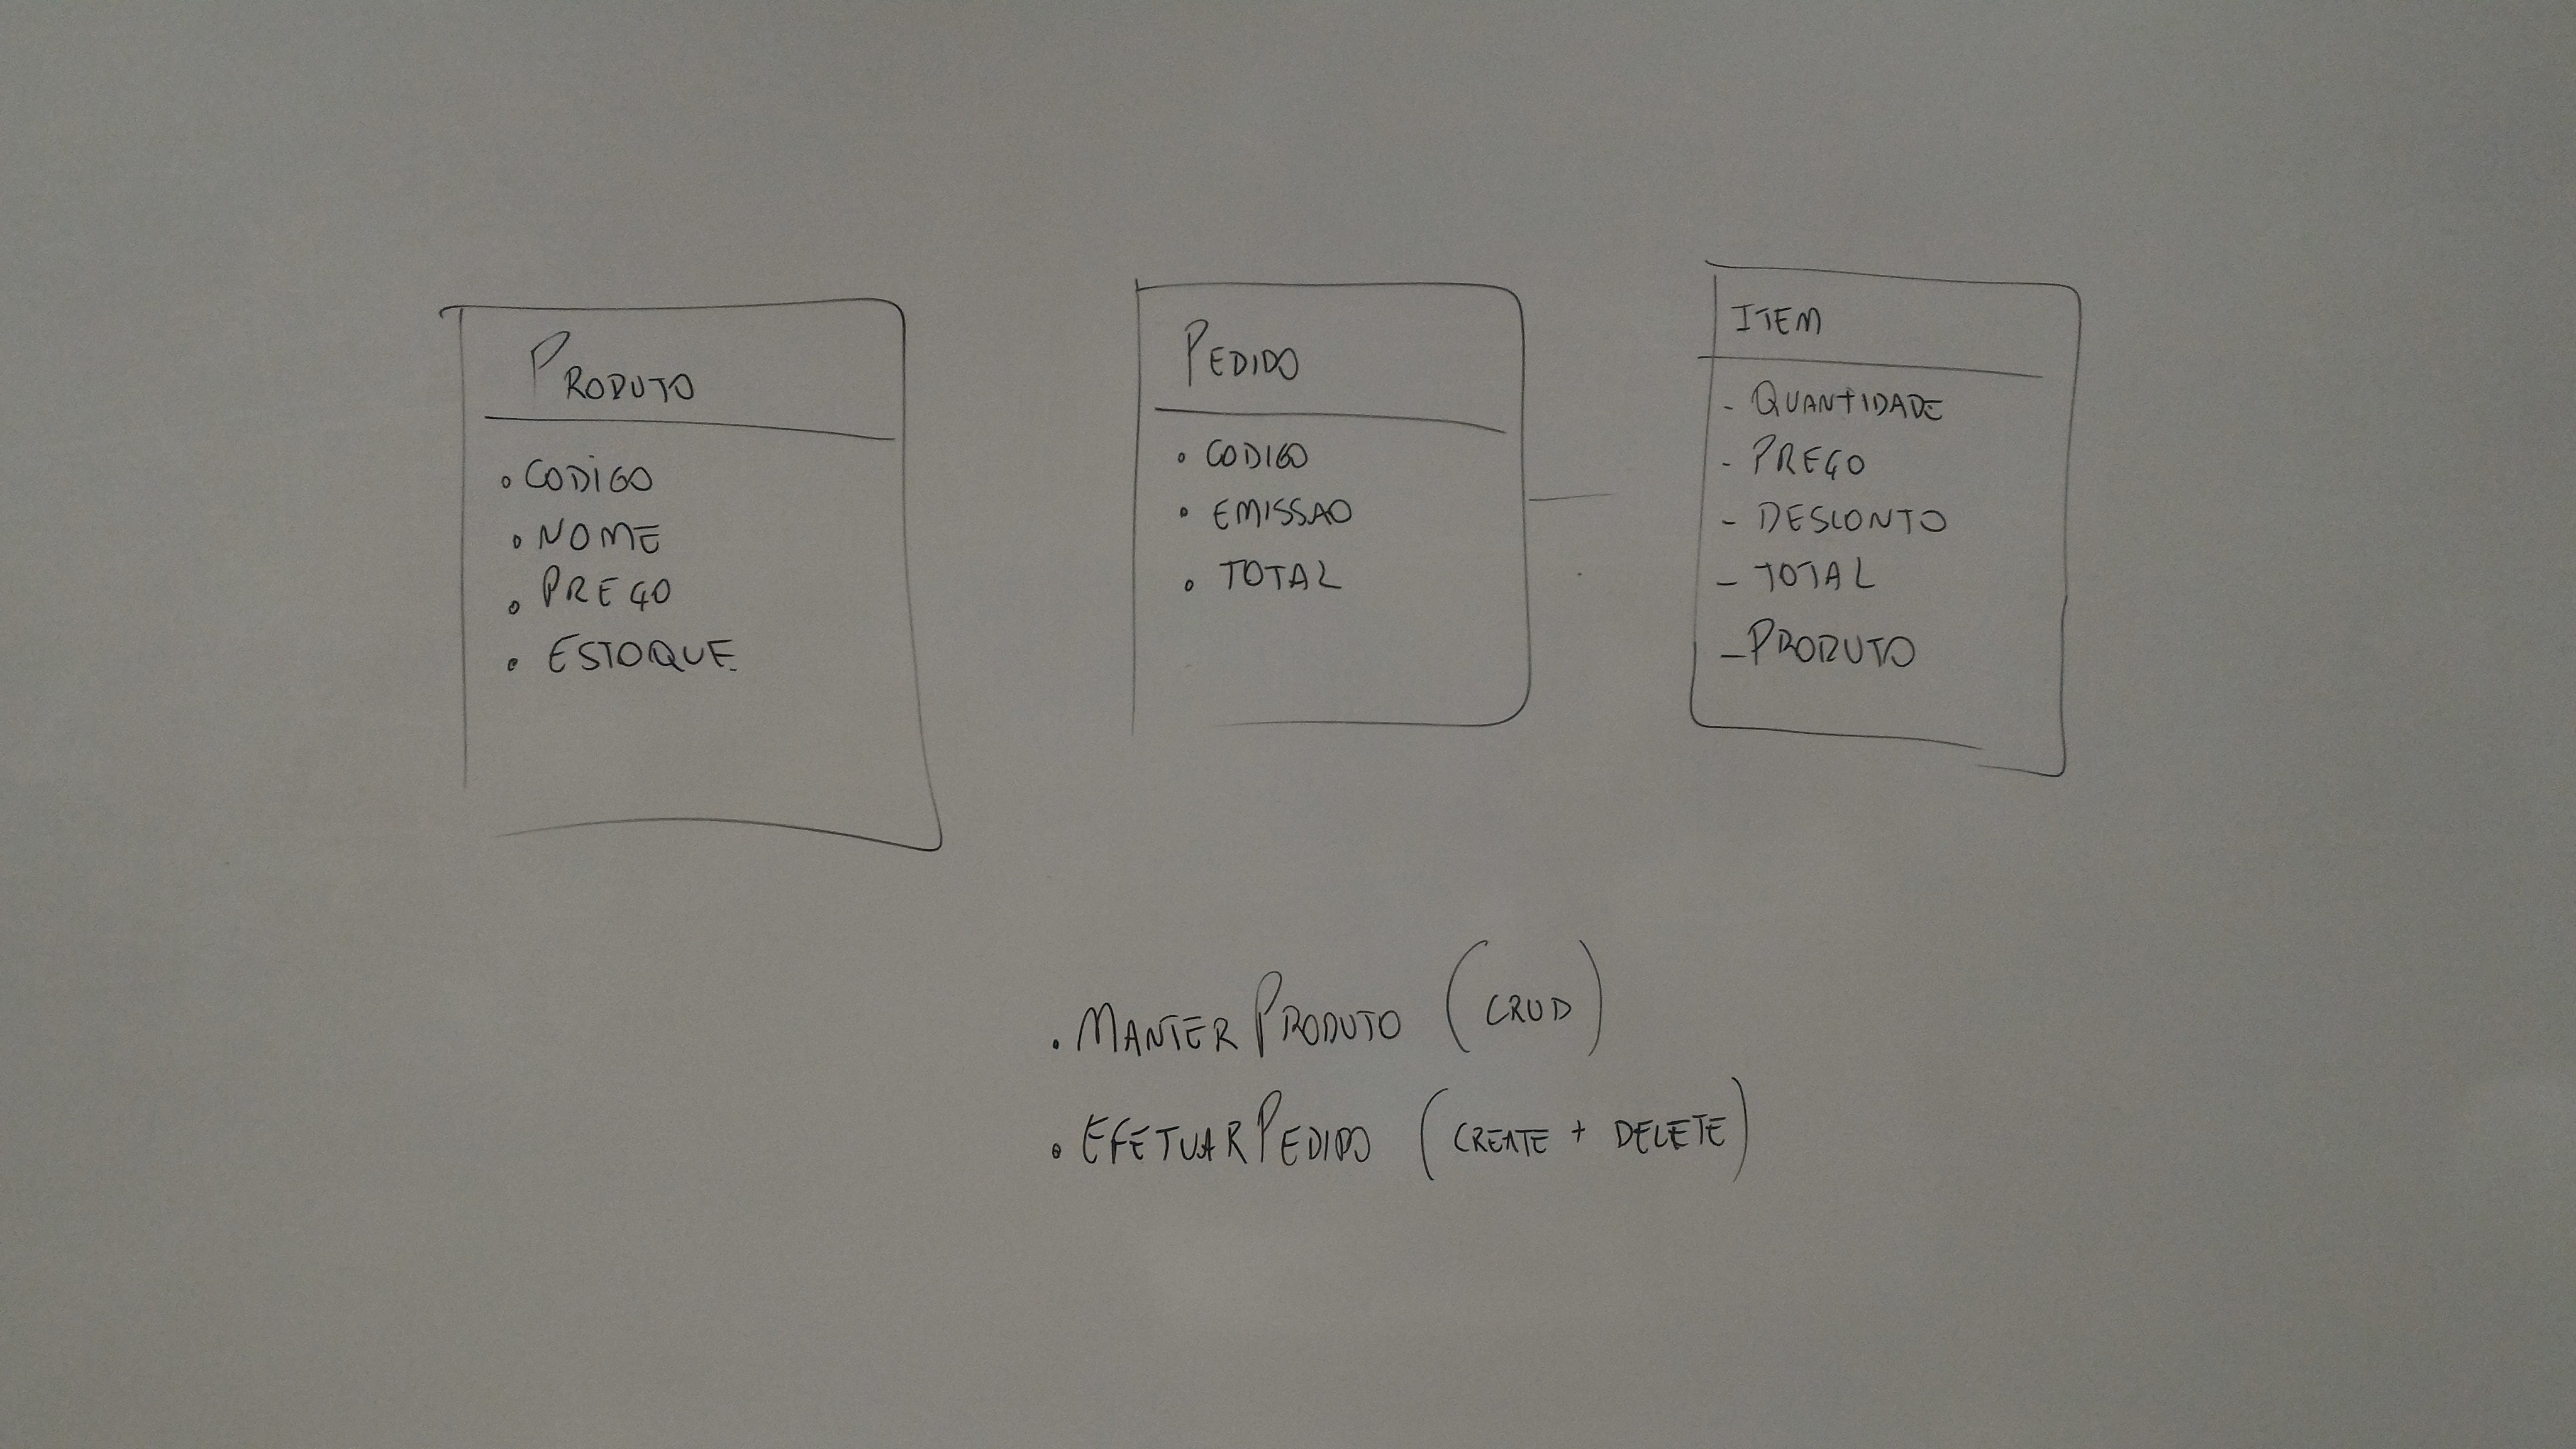 PRODUTO
• CODIGO
• NOME
• PREÇO
• ESTOQUE
PEDIDO
• CODIGO
• EMISSAO
• TOTAL
ITEM
- QUANTIDADE
- PREÇO
- DESCONTO
- TOTAL
- PRODUTO
• MANTER PRODUTO (CRUD)
• EFETUAR PEDIDO (CREATE + DELETE)